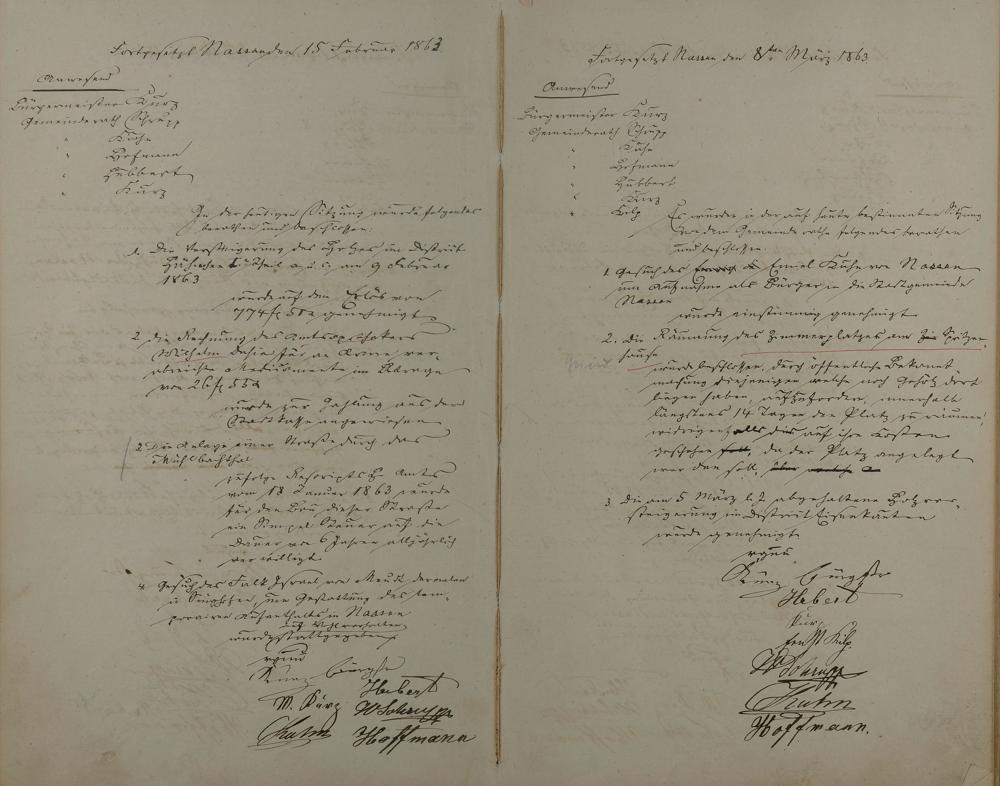 Fortgesetzt Nassau den 15 Februar 1863
Anwesend
Bürgermeister Kurz
Gemeinderath Schrupp
" Kuhn
" Hofmann
" Hubbert
" Kurz
In der heutigen Sitzung wurde folgendes
berathen und beschlossen.
1. Die Versteigerung des Holzes im District
Theil a. u. c. am 9 Februar
1863
wurde auf den Erlös von
774 fl genehmigt
2 die Rechnung des Amtsapothekers
Wilhelm für an Arme ver-
abreichte Medicamente im Betrage
von 26 fl 55
wurde zur Zahlung aus der
Stadtkasse angewiesen
3 Die Anlage einer Straße durch das
Mühlbachthal
zufolge Rescripts Hz. Amts
vom 18 Januar 1863 wurde
für den Bau dieser Straße
ein Simpel Steuer auf die
Dauer von 6 Jahren alljährlich
verwilligt
4. Gesuch des Falk Israel von Meudt dermalen
zu Singhofen, um Gestattung des tem-
porairen Aufenthalts in Nassau
auf Wohlverhalten
wurde stattgegeben
Kurz Bürgstr
Hubert
M. Kurz WSchrupp
Kuhn Hoffmann
Fortgesetzt Nassau den 8ten März 1863
Anwesend
Bürgermeister Kurz
Gemeinderath Schrupp
" Kuhn
" Hofmann
" Hubbert
" Kurz
" Külp
Es wurden in der auf heute bestimmten Sitzung
von dem Gemeinderathe folgendes berathen
und beschlossen.
1. Gesuch des Emil Kuhn von Nassau
um Aufnahme als Bürger in die Stadtgemeinde
Nassau
wurde einstimmig genehmigt
2. Die Räumung des Zimmerplatzes am Spritzen-
hause
wurde beschlossen, durch öffentliche Bekannt-
machung diejenigen welche noch Gehölz dort
liegen haben, aufzufordern, innerhalb
längstens 14 Tagen den Platz zu räumen,
widrigenfalls dies auf ihre Kosten
geschehen soll, da der Platz angelegt
werden soll,
3 Die am 5 März l. J. abgehaltene Holzver-
steigerung im District Eisenkauten
wurde genehmigt
Kurz Bürgstr
Hubert
Kurz
Külp
WSchrupp
Kuhn
Hoffmann.